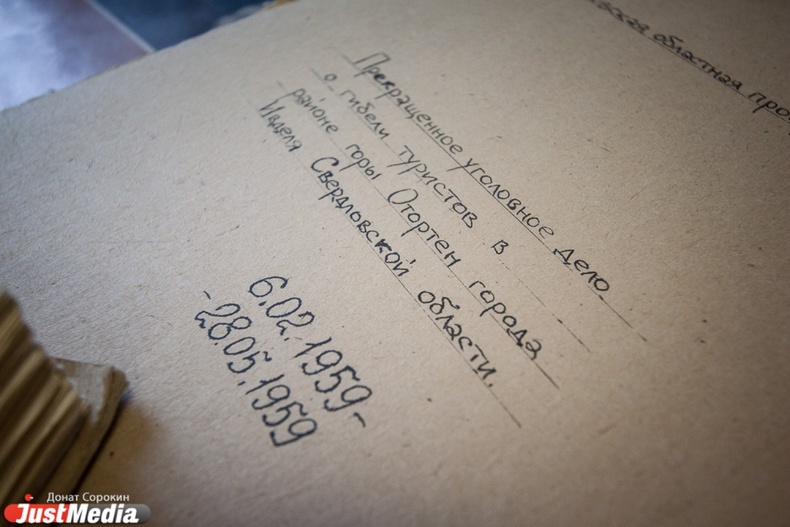 областная
Прекращенное уголовное дело
о гибели туристов в
районе горы Отортен города
Ивделя Свердловской области.
6.02.1959-
-28.05.1959
Донат Сорокин
JustMedia